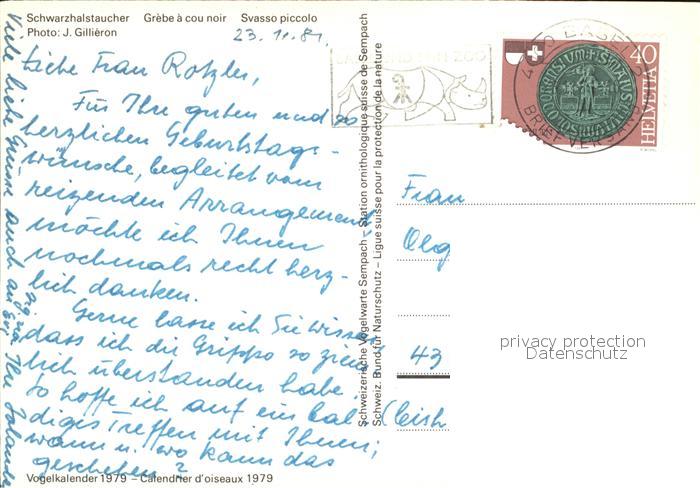 Schwarzhalstaucher Grèbe à cou noir Svasso piccolo
Photo: J. Gilliéron
23. 11. 81.
Liebe Frau Rotzler,
Für Ihre guten und so
herzlichen Geburtstags-
wünsche, begleitet vom
reizenden Arrangement
möchte ich Ihnen
nochmals recht herz-
lich danken.
Gerne lasse ich Sie wissen
dass ich die Grippe so ziem
lich überstanden habe.
So hoffe ich auf ein bal-
diges Treffen mit Ihnen;
wann u. wo kann das
geschehen?
Viele liebe Grüsse auch an Ihre Jolanda
Vogelkalender 1979 – Calendrier d'oiseaux 1979
Schweizerische Vogelwarte Sempach – Station ornithologique suisse de Sempach
Schweiz. Bund für Naturschutz – Ligue suisse pour la protection de la nature
ZOO
BASEL
BRIEFVERSAND
40
HELVETIA
Frau
Olg
43
privacy protection
Datenschutz